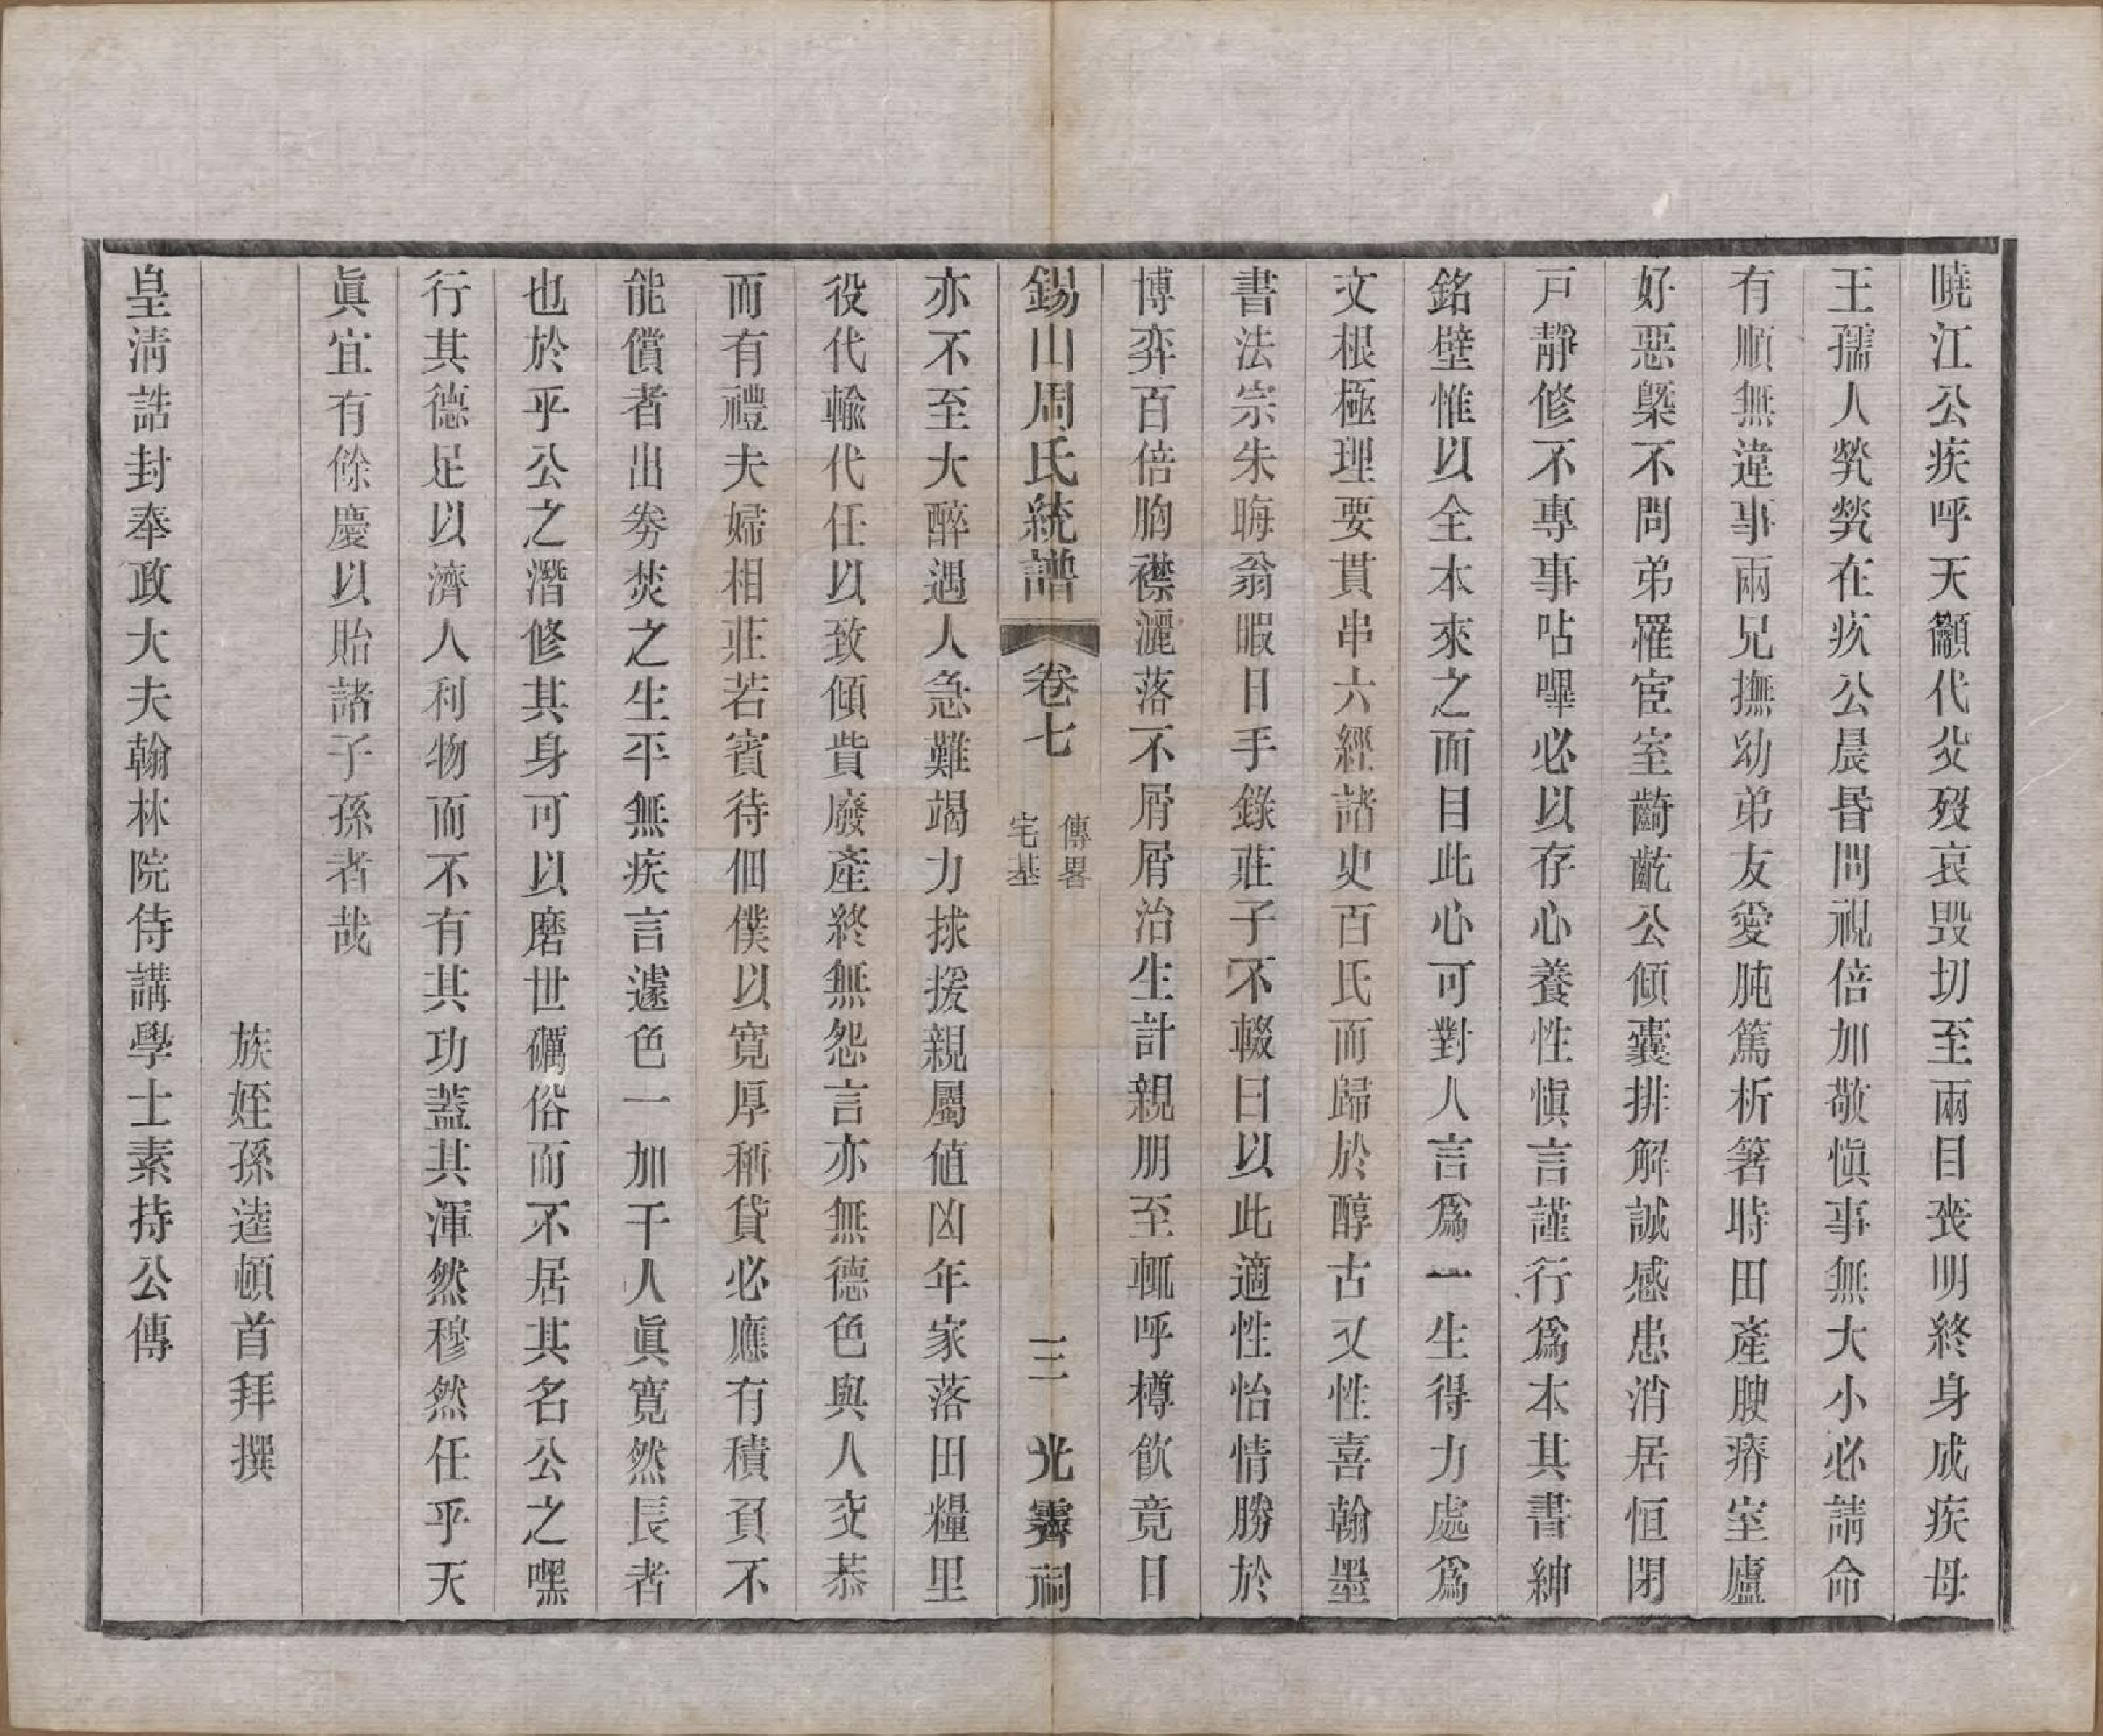 曉江公疾呼天籲代父歿哀毁切至兩目喪明終身成疾母
王孺人煢煢在疚公晨昏問視倍加敬愼事無大小必請命
有順無違事兩兄撫幼弟友愛肫篤析箸時田產腴瘠室廬
好惡槩不問弟罹宦室齮齕公傾囊排解誠感患消居恒閉
戸靜修不專事呫嗶必以存心養性愼言謹行爲本其書紳
銘壁惟以全本來之面目此心可對人言爲一生得力處爲
文根極理要貫串六經諸史百氏而歸於醇古又性喜翰墨
書法宗朱晦翁暇日手錄莊子不輟曰以此適性怡情勝於
博弈百倍胸襟灑落不屑屑治生計親朋至輒呼樽飮竟日
錫山周氏統譜
卷七
傳畧
宅基
三
光霽祠
亦不至大醉遇人急難竭力捄援親屬値凶年家落田糧里
役代輸代任以致傾貲廢產終無怨言亦無德色與人交恭
而有禮夫婦相莊若賓待佃僕以寬厚稱貸必應有積負不
能償者出劵焚之生平無疾言遽色一加于人眞寬然長者
也於乎公之潛修其身可以磨世礪俗而不居其名公之嘿
行其德足以濟人利物而不有其功蓋其渾然穆然任乎天
眞宜有餘慶以貽諸子孫者哉
族姪孫逵頓首拜撰
皇淸誥封奉政大夫翰林院侍講學士素持公傳